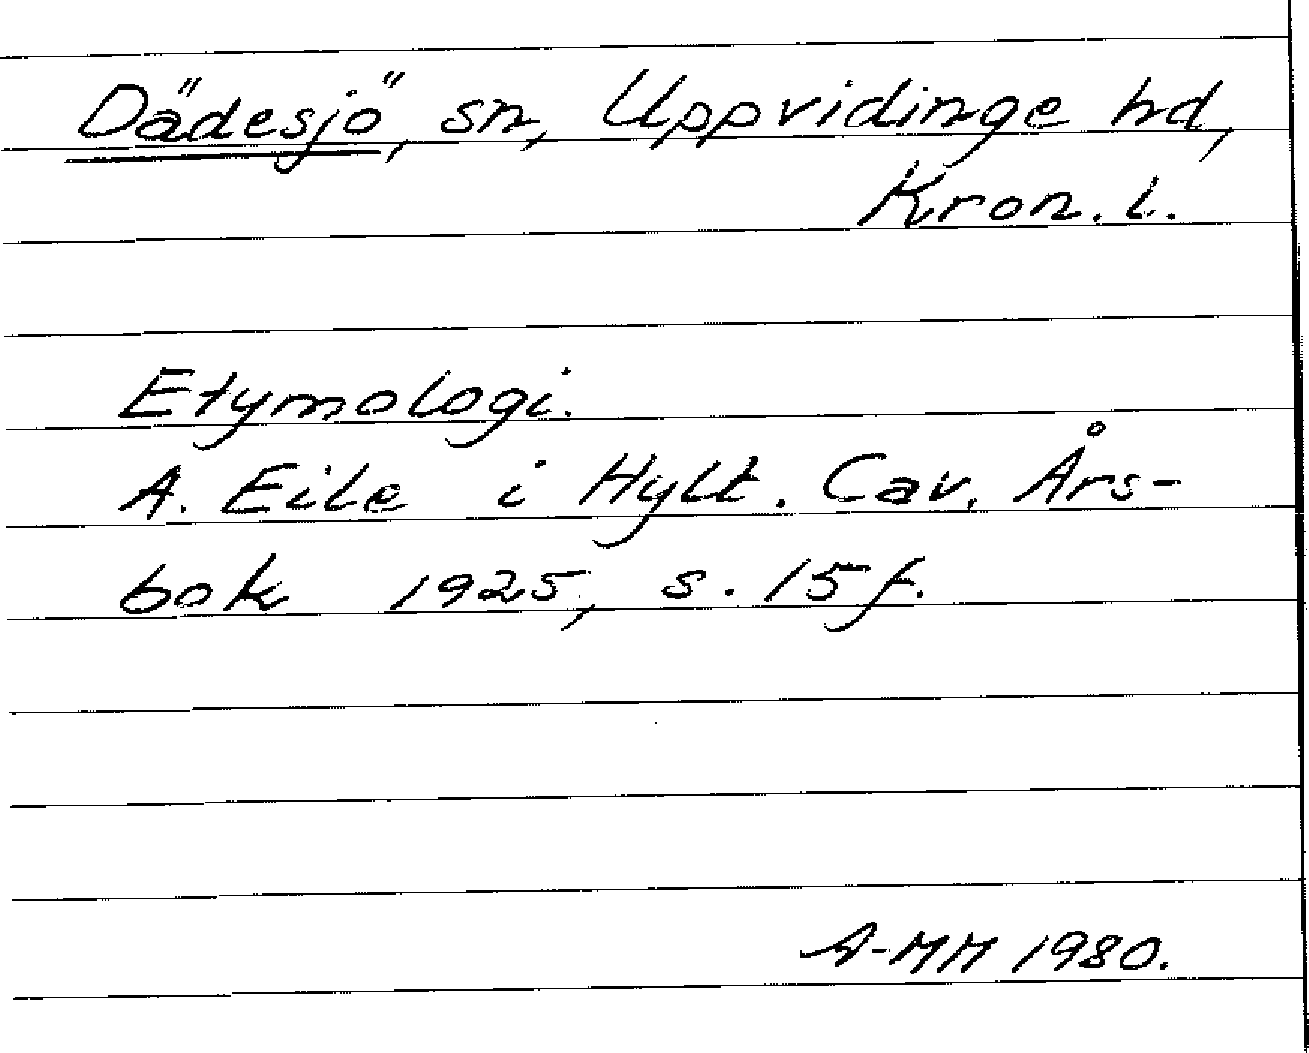 Dädesjö, sn, Uppvidinge hd,
Kron. l.
Etymologi.
A. Eile i Hylt. Cav. Års-
bok 1925, s. 15 f.
A-MM 1980.